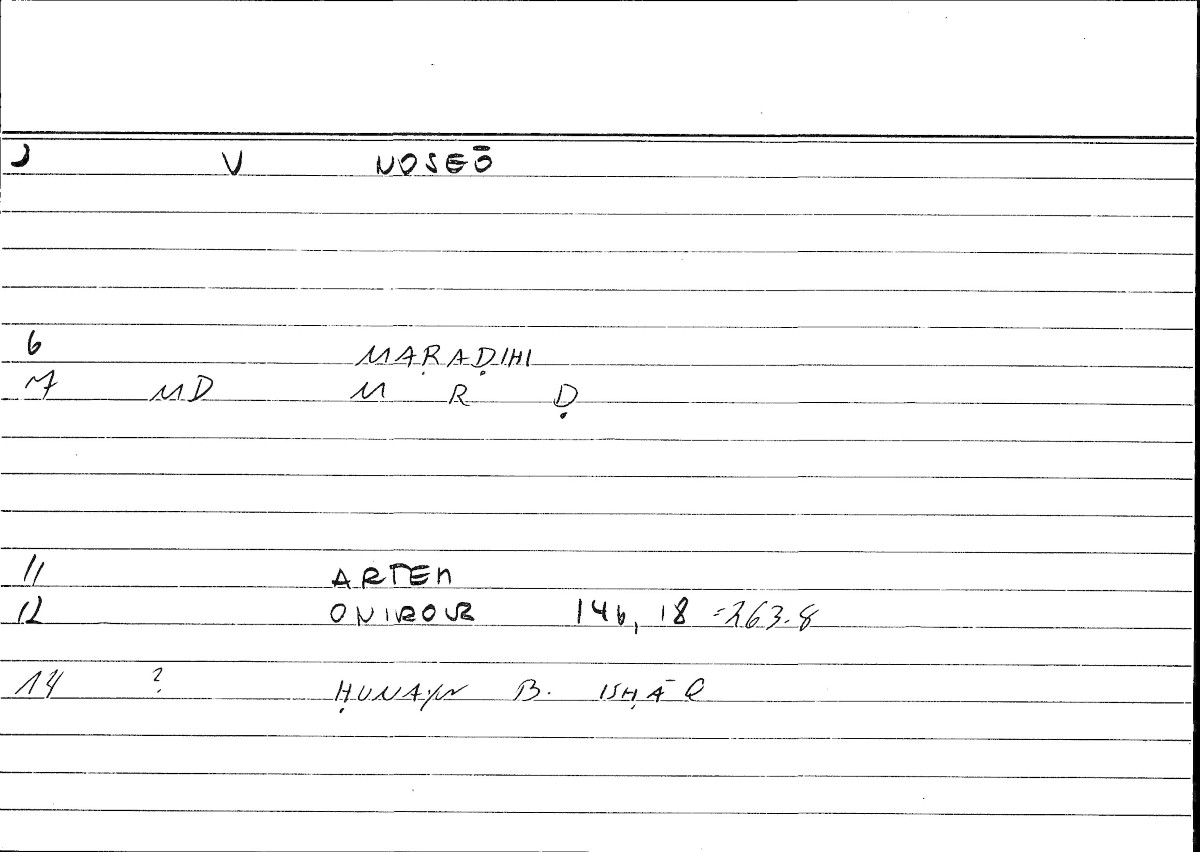 J V NOSEŌ
6 MARAḌIHI
7 MD M R Ḍ
11 ARTEM
12 ONIROUR 146, 18 =263.8
14 ? ḤUNAYN B. ISḤĀQ